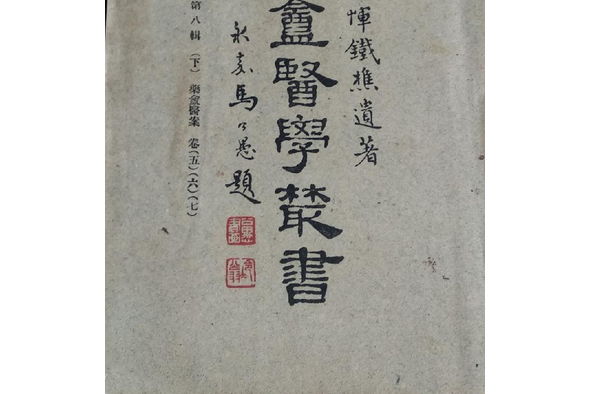 惲鐵樵遺著
盦醫學叢書
永嘉馬公愚題
第八輯（下） 藥盦醫案 卷（五）（六）（七）